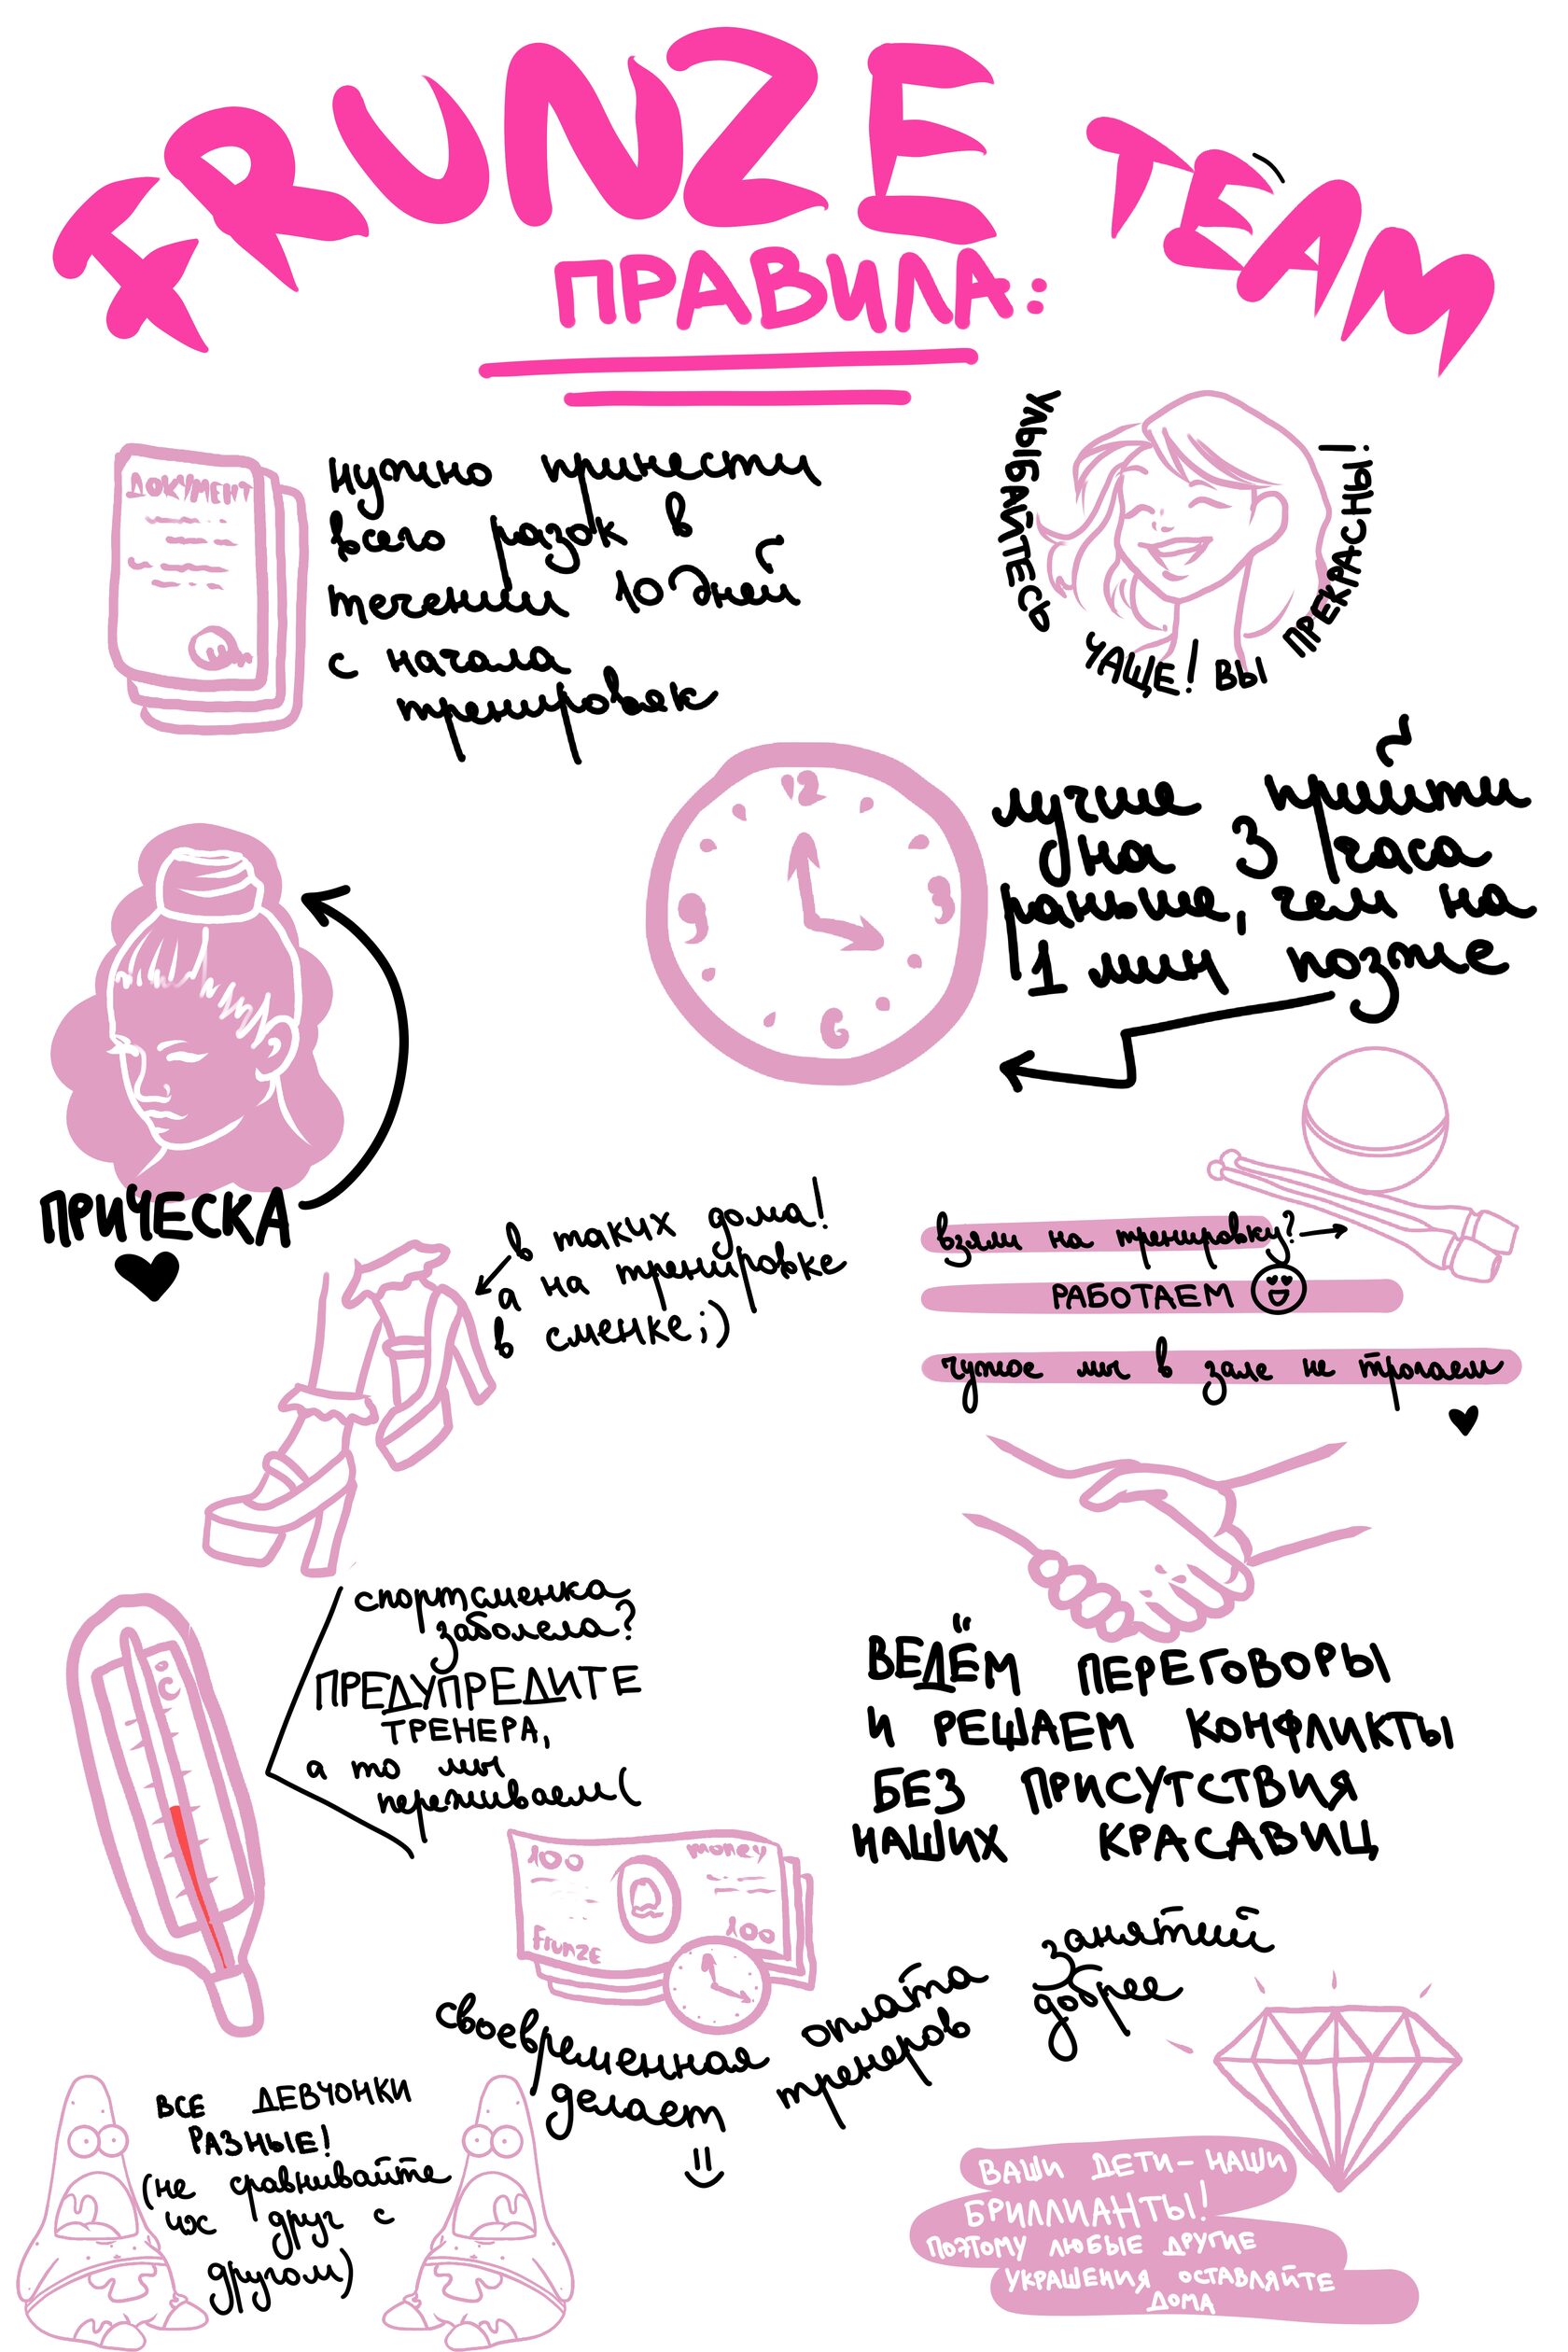 FRUNZE TEAM
ПРАВИЛА:
ДОКУМЕНТ
нужно принести
всего разок в
течении 10 дней
с начала
тренировок
УЛЫБАЙТЕСЬ ЧАЩЕ! ВЫ ПРЕКРАСНЫ!
12
3
6
9
лучше прийти
на 3 часа
раньше, чем на
1 мин позже
ПРИЧЕСКА
в таких дома!
а на тренировке
в сменке;)
взяли на тренировку?
РАБОТАЕМ
чужое мы в зале не трогаем
°C
спортсменка
заболела?
ПРЕДУПРЕДИТЕ
ТРЕНЕРА,
а то мы
переживаем(
ВЕДЁМ ПЕРЕГОВОРЫ
И РЕШАЕМ КОНФЛИКТЫ
БЕЗ ПРИСУТСТВИЯ
НАШИХ КРАСАВИЦ
100 money
Frunze 100
своевременная оплата занятий
делает тренеров добрее
ВСЕ ДЕВЧОНКИ
РАЗНЫЕ!
(не сравнивайте
их друг с
другом)
ВАШИ ДЕТИ - НАШИ
БРИЛЛИАНТЫ!
ПОЭТОМУ ЛЮБЫЕ ДРУГИЕ
УКРАШЕНИЯ ОСТАВЛЯЙТЕ
ДОМА